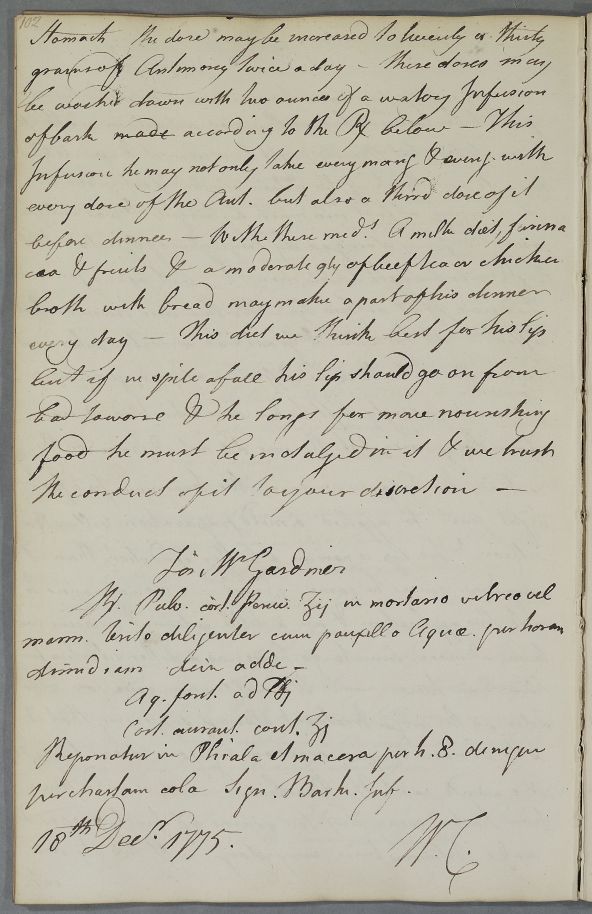 102
Stomach the dose may be increased to twenty or thirty
grains of Antimony twice a day – these doses may
be washed down with two ounces of a watery Infusion
of bark made according to the ℞ below – This
Infusion he may not only take every morng & eveng. with
every dose of the Ant. but also a third dose of it
before dinner – With these meds A milk diet, farina
cea & fruits & a moderate qty of beef tea or chicken
broth with bread may make a part of his dinner
every day – This diet we think best for his lip
but if in spite of all his lip should go on from
bad to worse & he longs for more nourishing
food he must be indulged in it & we trust
the conduct of it to your discretion –
For Mr Gardner
℞. Pulv. cort. Peruv. ʒij in mortario vitreo vel
marm. terito diligenter cum pauxillo Aquæ. per horam
dimidiam dein adde –
Aq. font. ad ℔j
Cort. aurant. cont. ʒj
Reponatur in Phiala et macera per h. 8. denique
per chartam cola Sign. Bark. Inf.
18th Decr. 1775.
W. C.